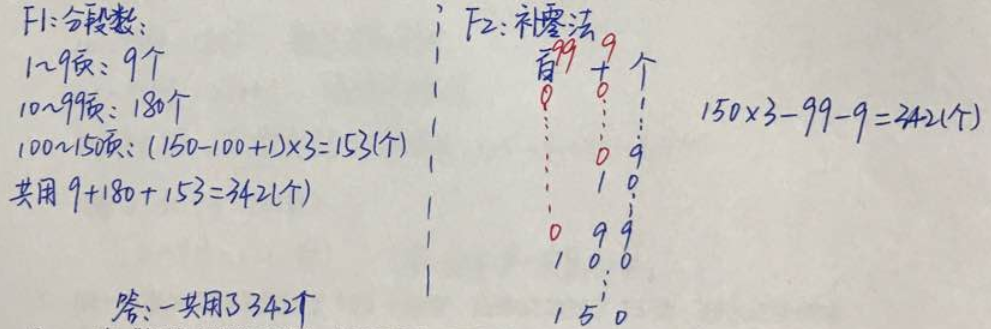 F1:分段数:
1~9页: 9个
10~99页: 180个
100~150页: (150-100+1)×3=153(个)
共用 9+180+153=342(个)
答:一共用了342个
F2:补零法
99 9
百 十 个
0 0
0 9
1 0
0 9 9
1 0 0
1 5 0
150×3-99-9=342(个)